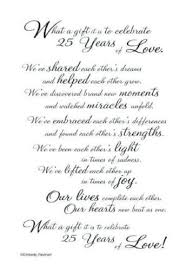 What a gift it is to celebrate
25 Years
of Love.
We've shared each other's dreams
and helped each other grow.
We've discovered brand new moments
and watched miracles unfold.
We've embraced each other's differences
and found each other's strengths.
We've been each other's light
in times of sadness.
We've lifted each other up
in times of joy.
Our lives complete each other.
Our hearts now beat as one.
What a gift it is to celebrate
25 Years
of Love!